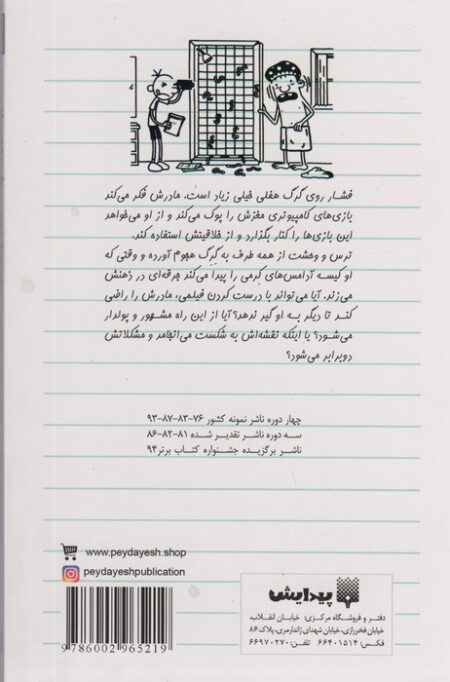 فشار روی گرگ هفلی خیلی زیاد است. مادرش فکر می‌کند
بازی‌های کامپیوتری مغزش را پوک می‌کند و از او می‌خواهد
این بازی‌ها را کنار بگذارد و از خلاقیتش استفاده کند.
ترس و وحشت از همه طرف به گرگ هجوم آورده و وقتی که
او کیسه آدامس‌های کرمی را پیدا می‌کند جرقه‌ای در ذهنش
می‌زند. آیا می‌تواند با درست کردن فیلمی، مادرش را راضی
کند تا دیگر به او گیر ندهد؟ آیا از این راه مشهور و پولدار
می‌شود؟ یا اینکه نقشه‌اش به شکست می‌انجامد و مشکلاتش
دوبرابر می‌شود؟
چهار دوره ناشر نمونه کشور ۷۶-۸۳-۸۷-۹۳
سه دوره ناشر تقدیر شده ۸۱-۸۲-۸۶
ناشر برگزیده جشنواره کتاب برتر ۹۴
www.peydayesh.shop
peydayeshpublication
9 786002 965219
پیدایش
دفتر و فروشگاه مرکزی: خیابان انقلاب،
خیابان فخررازی، خیابان شهدای ژاندارمری، پلاک ۸۶
فکس: ۶۶۴۰۱۵۱۴ تلفن: ۶۶۹۷۰۲۷۰